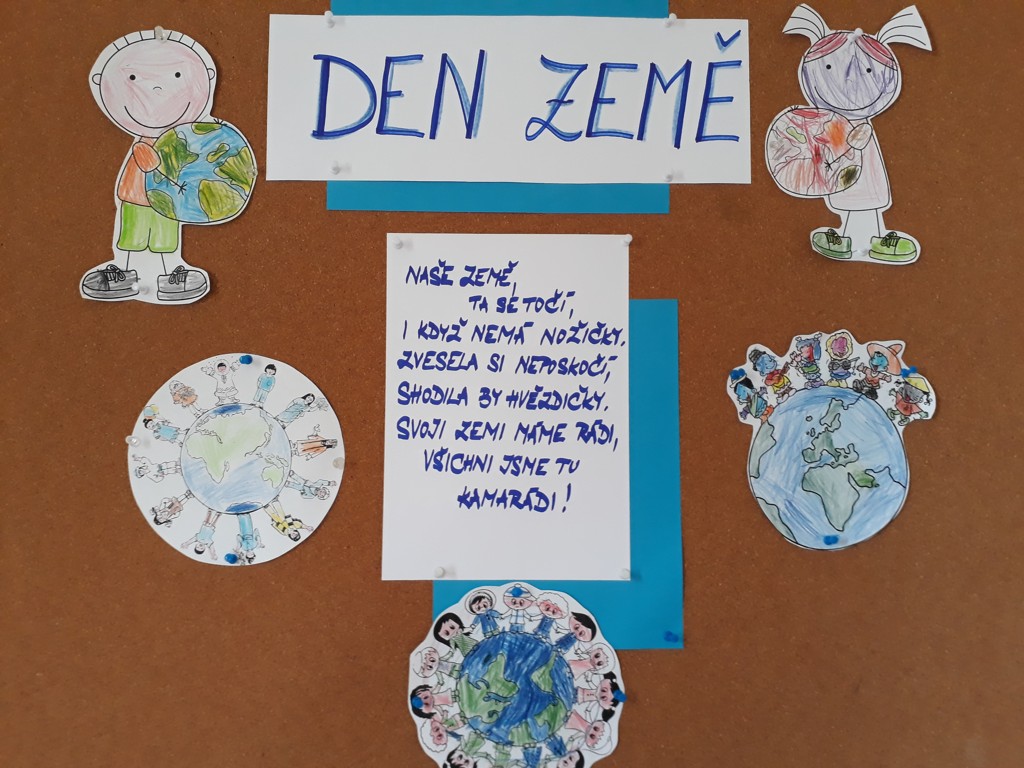 DEN ZEMĚ
NAŠE ZEMĚ,
TA SE TOČÍ,
I KDYŽ NEMÁ NOŽIČKY.
ZVESELA SI NEPOSKOČÍ,
SHODILA BY HVĚZDIČKY.
SVOJI ZEMI MÁME RÁDI,
VŠICHNI JSME TU
KAMARÁDI!